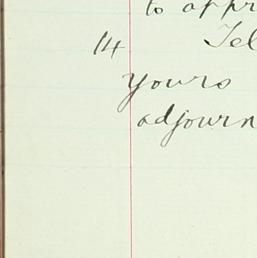 to appr
14 Tel
yours
adjourn